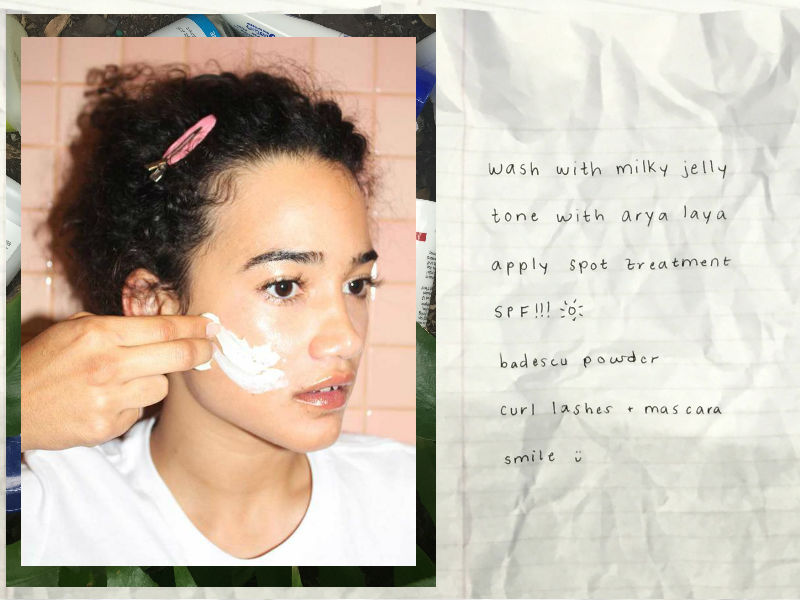 wash with milky jelly
tone with arya laya
apply spot treatment
SPF!!!
badescu powder
curl lashes + mascara
smile ü